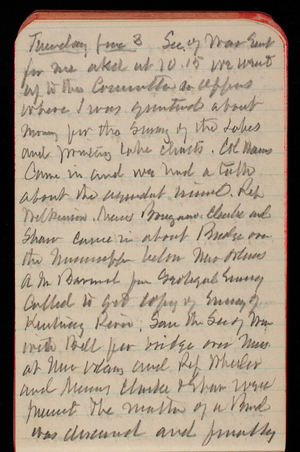 Tuesday June 8 Sec of War sent
for me and at 10.15 we went
up to the Committee on Approps
where I was questioned about
money for the survey of the Lakes
and printing Lake charts. Col Adams
Came in and we had a talk
about the
Wilkinson. Messrs Clarke and
Shaw came in about Bridge over
the Mississippi below New Orleans
A M Barnard for Geological Survey
called to get copy of Survey of
Kentucky River. Saw the Sec of War
with Bill for bridge over Miss
at New Orleans and Rep Wheeler
and Messrs Clarke & Shaw were
present. The matter of a Bond
was discussed and finally